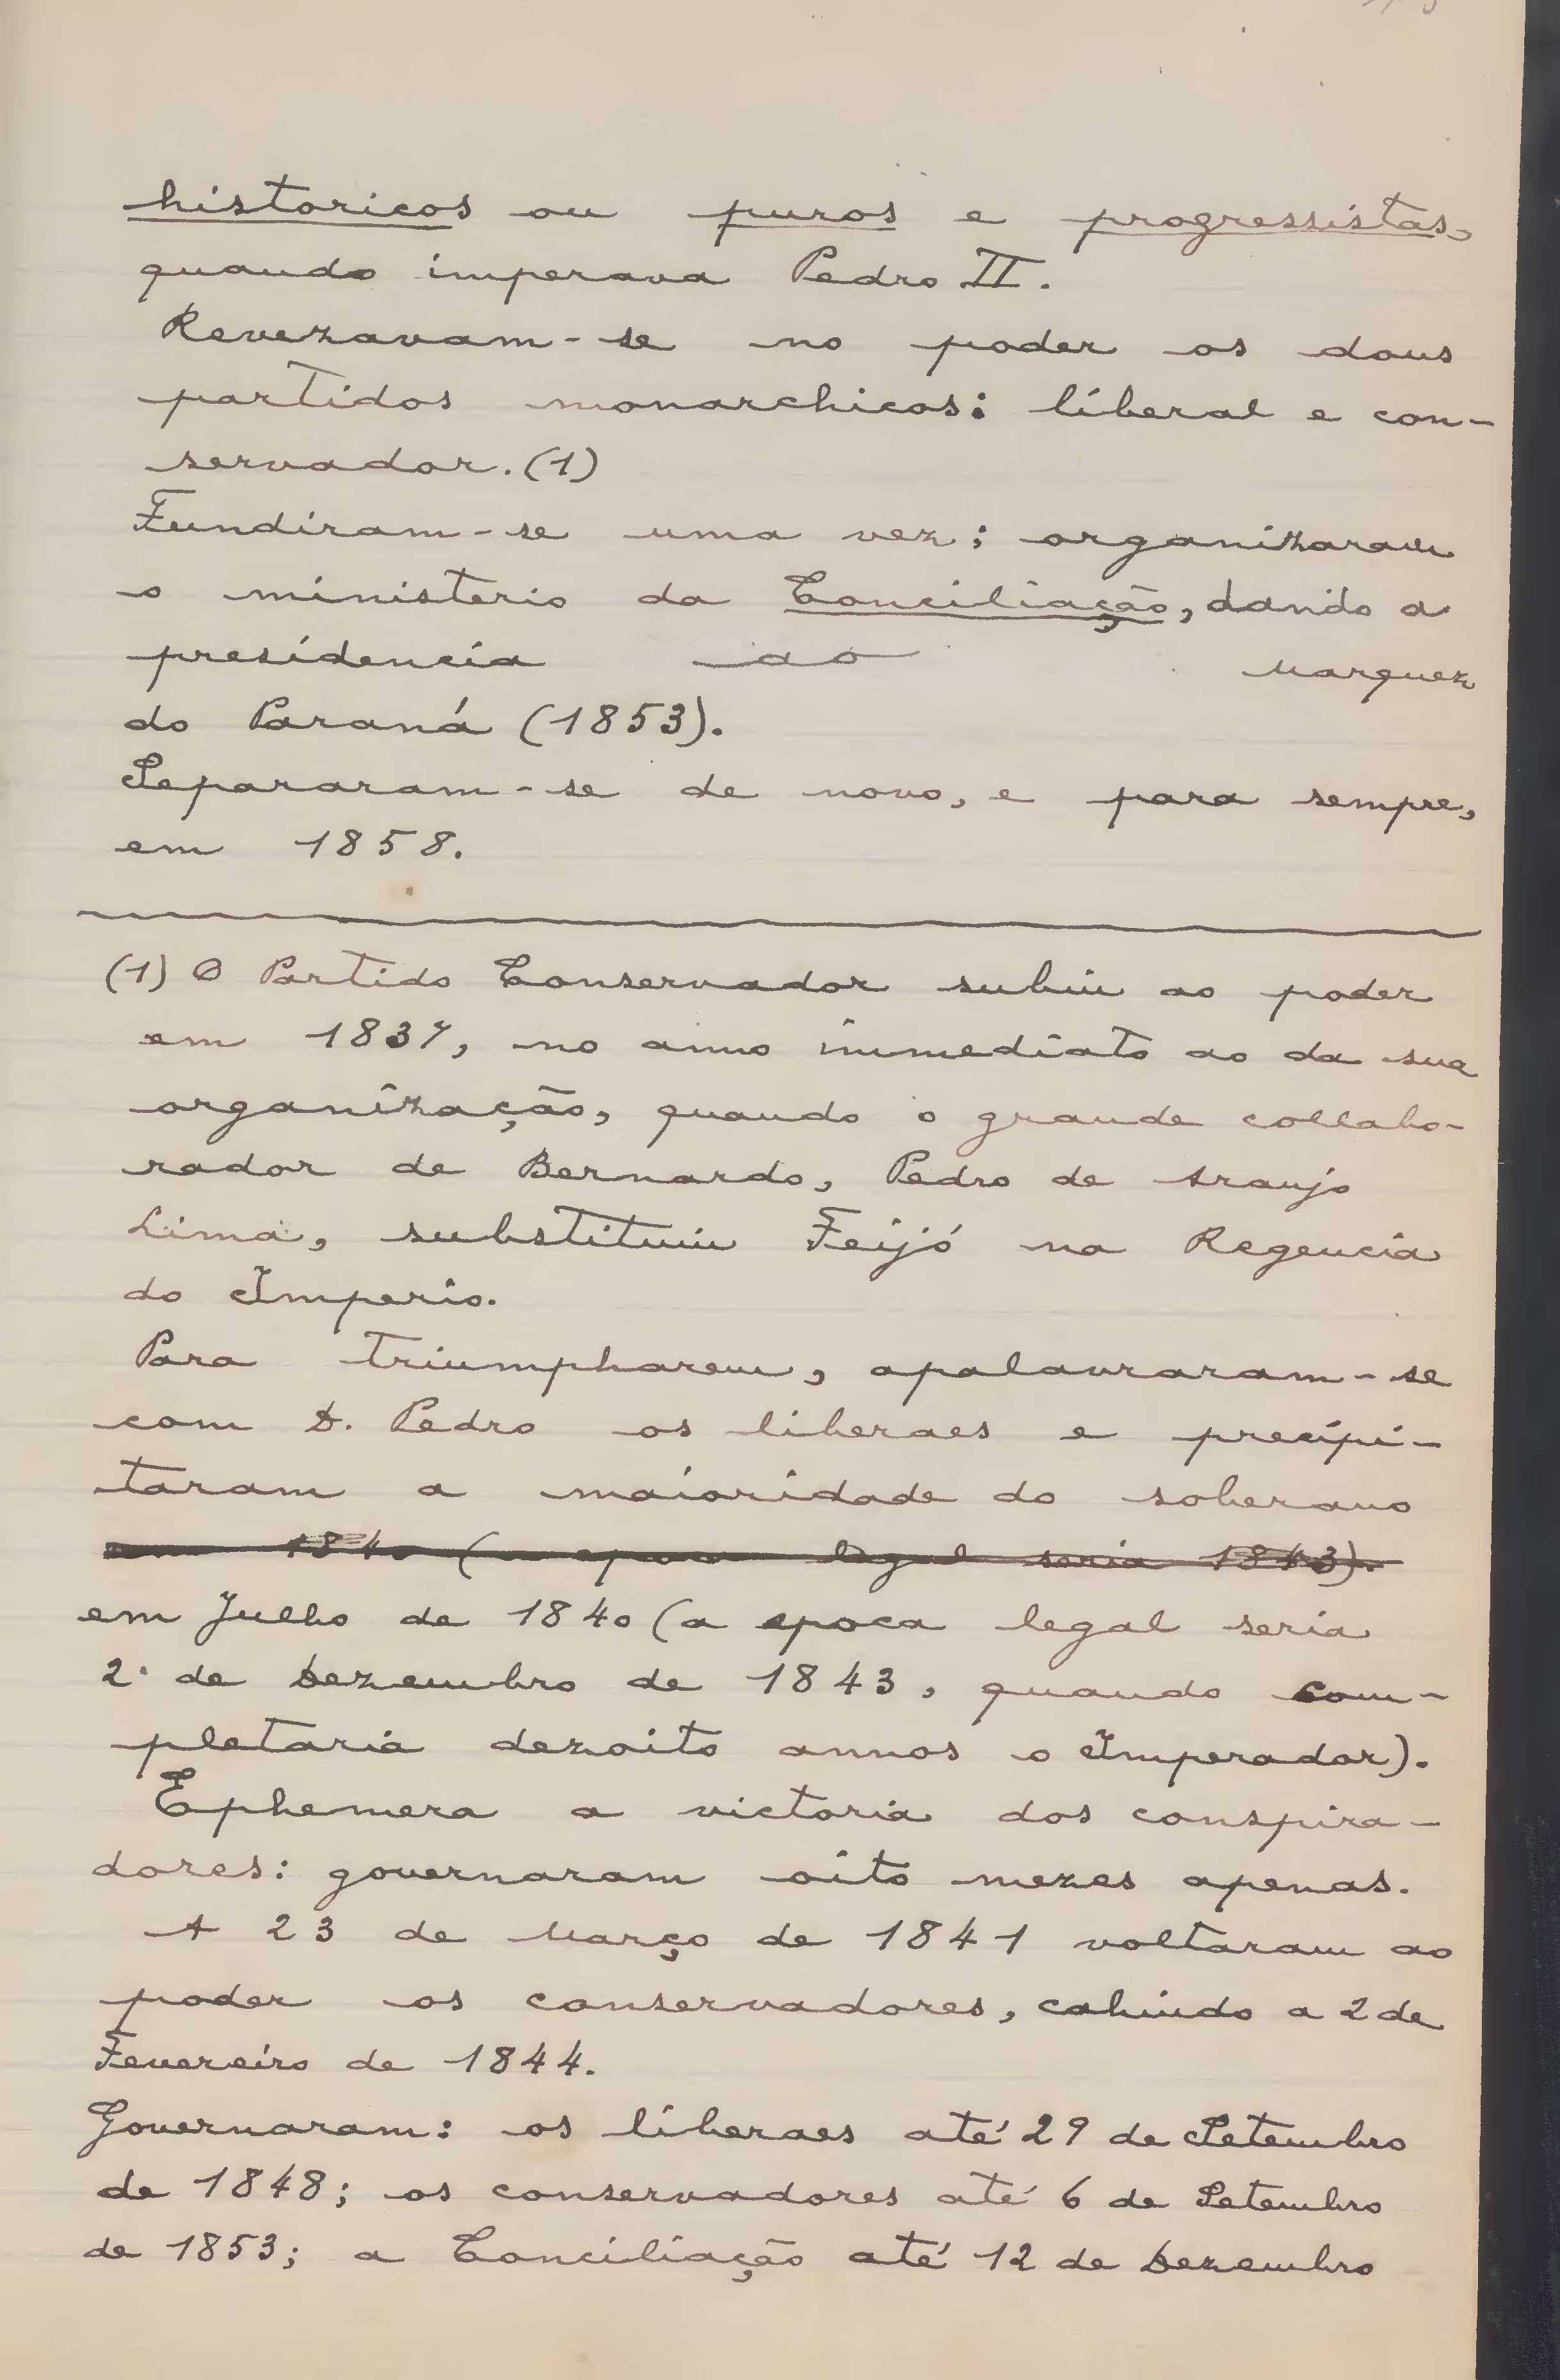 historicos ou puros e progressistas,
quando imperava Pedro II.
Revezavam-se no poder os dous
partidos monarchicos: liberal e con-
servador. (1)
Fundiram-se uma vez; organizaram
o ministerio da Conciliação, dando a
presidencia ao Marquez
do Paraná (1853).
Separaram-se de novo, e para sempre,
em 1858.
(1) O Partido Conservador subiu ao poder
em 1837, no anno immediato ao da sua
organização, quando o grande collabo-
rador de Bernardo, Pedro de Araujo
Lima, substituiu Feijó na Regencia
do Imperio.
Para triumpharem, apalavraram-se
com D. Pedro os liberaes e precipi-
taram a maioridade do soberano
em 1840 (a epoca legal seria 1843).
em Julho de 1840 (a epoca legal seria
2 de Dezembro de 1843, quando com-
pletaria dezoito annos o Imperador).
Ephemera a victoria dos conspira-
dores: governaram oito mezes apenas.
A 23 de Março de 1841 voltaram ao
poder os conservadores, cahindo a 2 de
Fevereiro de 1844.
Governaram: os liberaes até 29 de Setembro
de 1848; os conservadores até 6 de Setembro
de 1853; a Conciliação até 12 de Dezembro